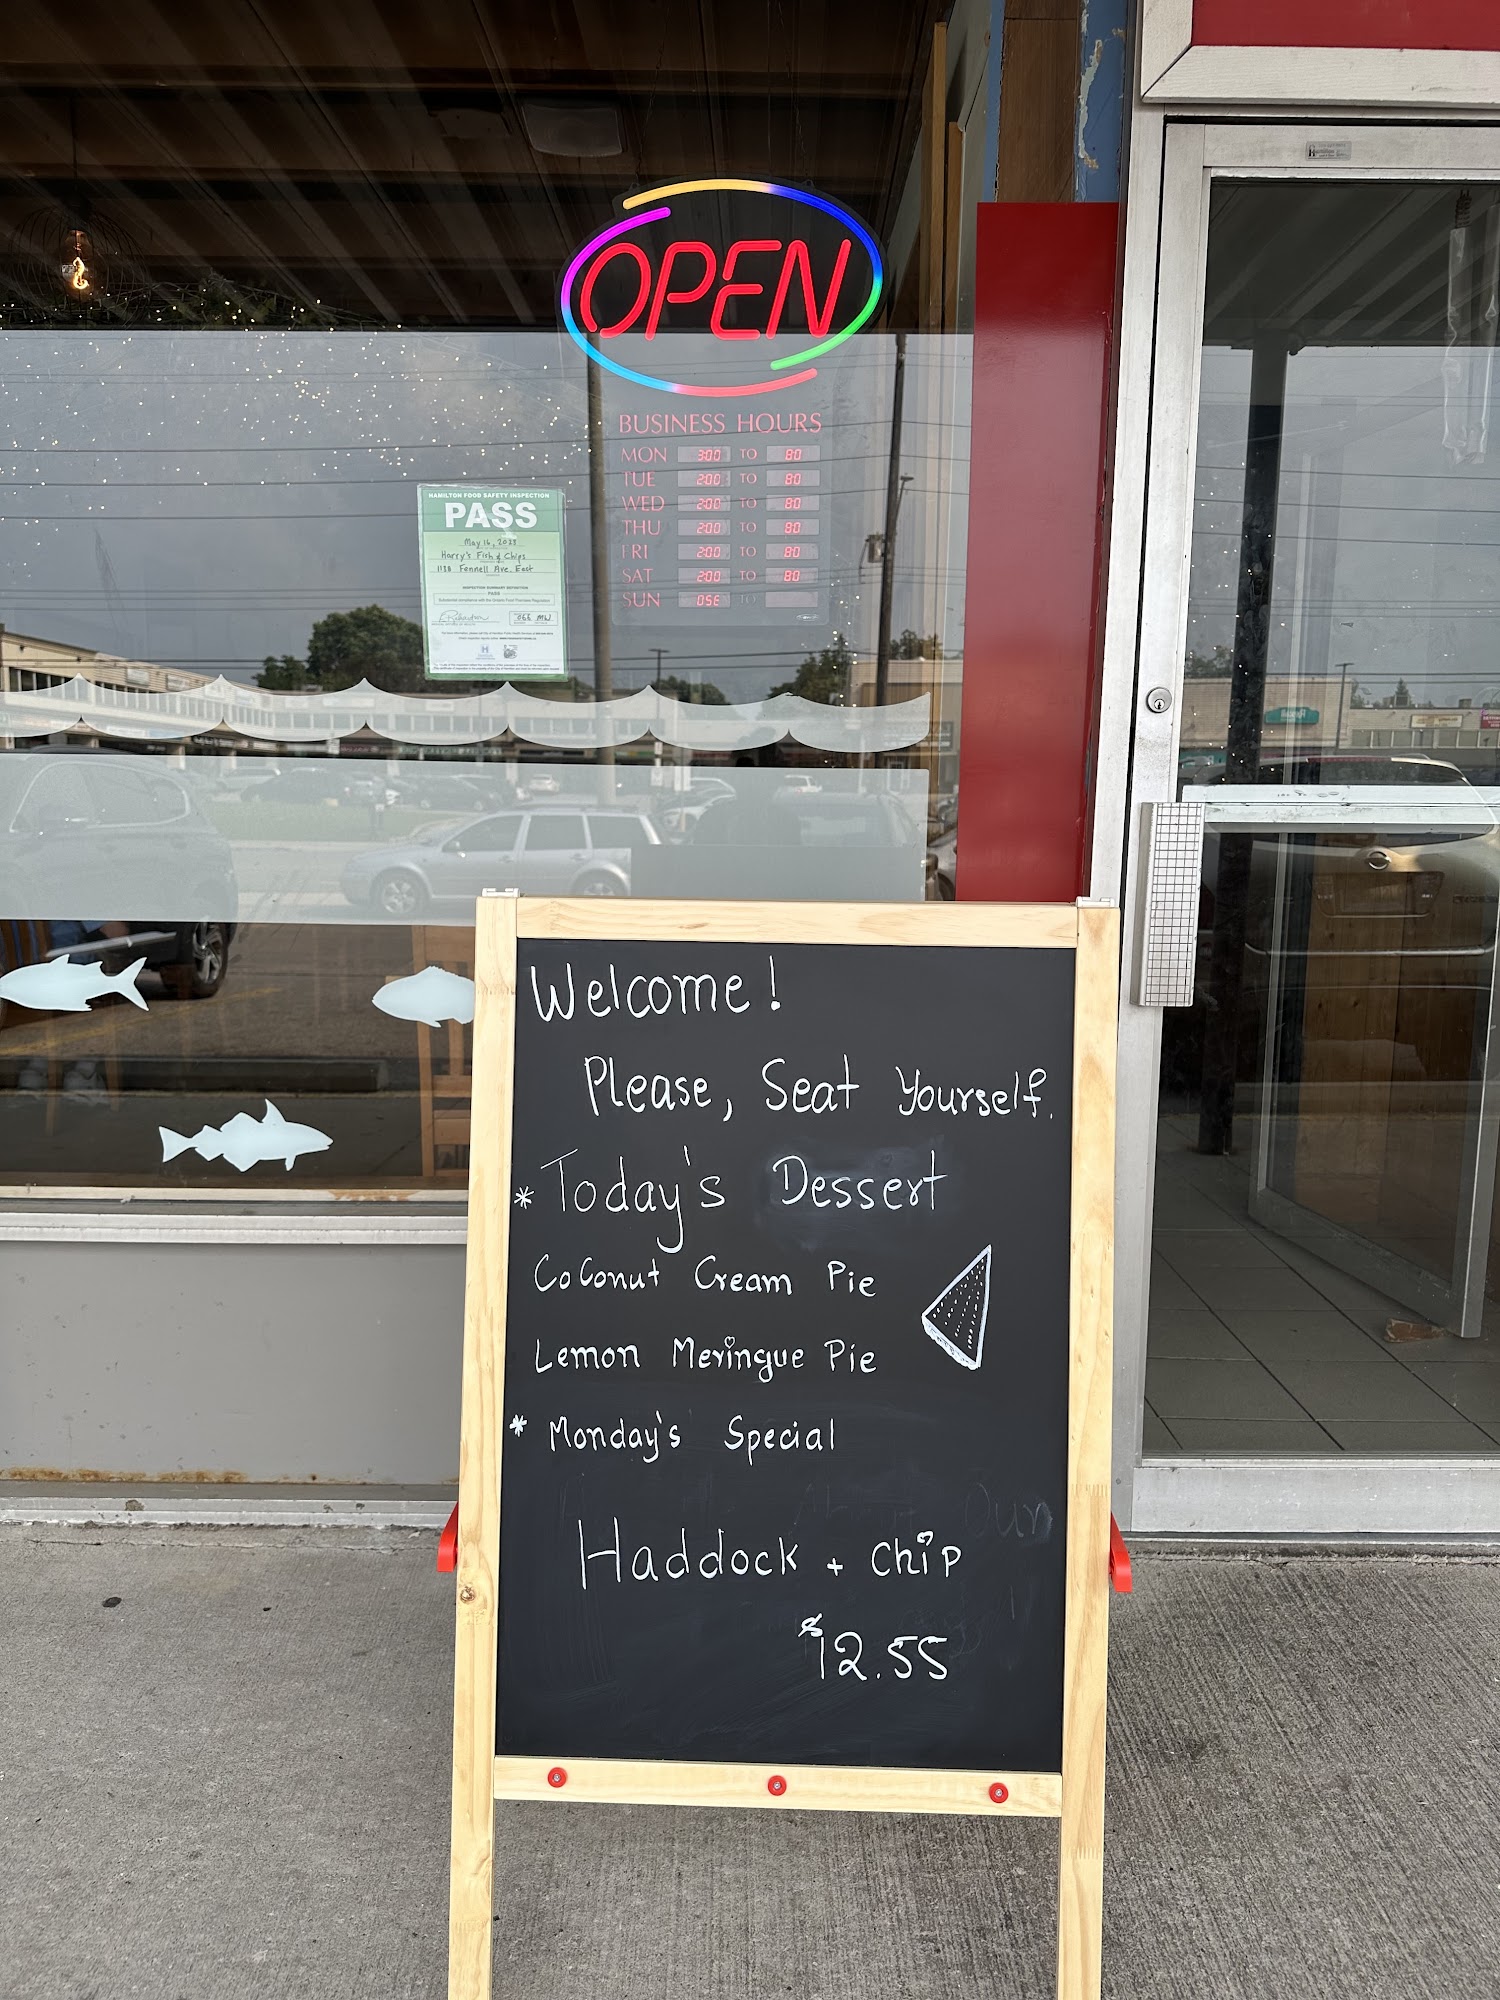 OPEN
BUSINESS HOURS
MON 3:00 TO 80
TUE 2:00 TO 80
WED 2:00 TO 80
THU 2:00 TO 80
FRI 2:00 TO 80
SAT 2:00 TO 80
SUN OSE TO
HAMILTON FOOD SAFETY INSPECTION
PASS
May 16, 2023
Harry's Fish & Chips
1138 Fennell Ave. East
INSPECTION SUMMARY NOTATION
PASS
Welcome!
Please, Seat Yourself.
* Today's Dessert
Coconut Cream Pie
Lemon Meringue Pie
* Monday's Special
Our
Haddock + Chip
$12.55